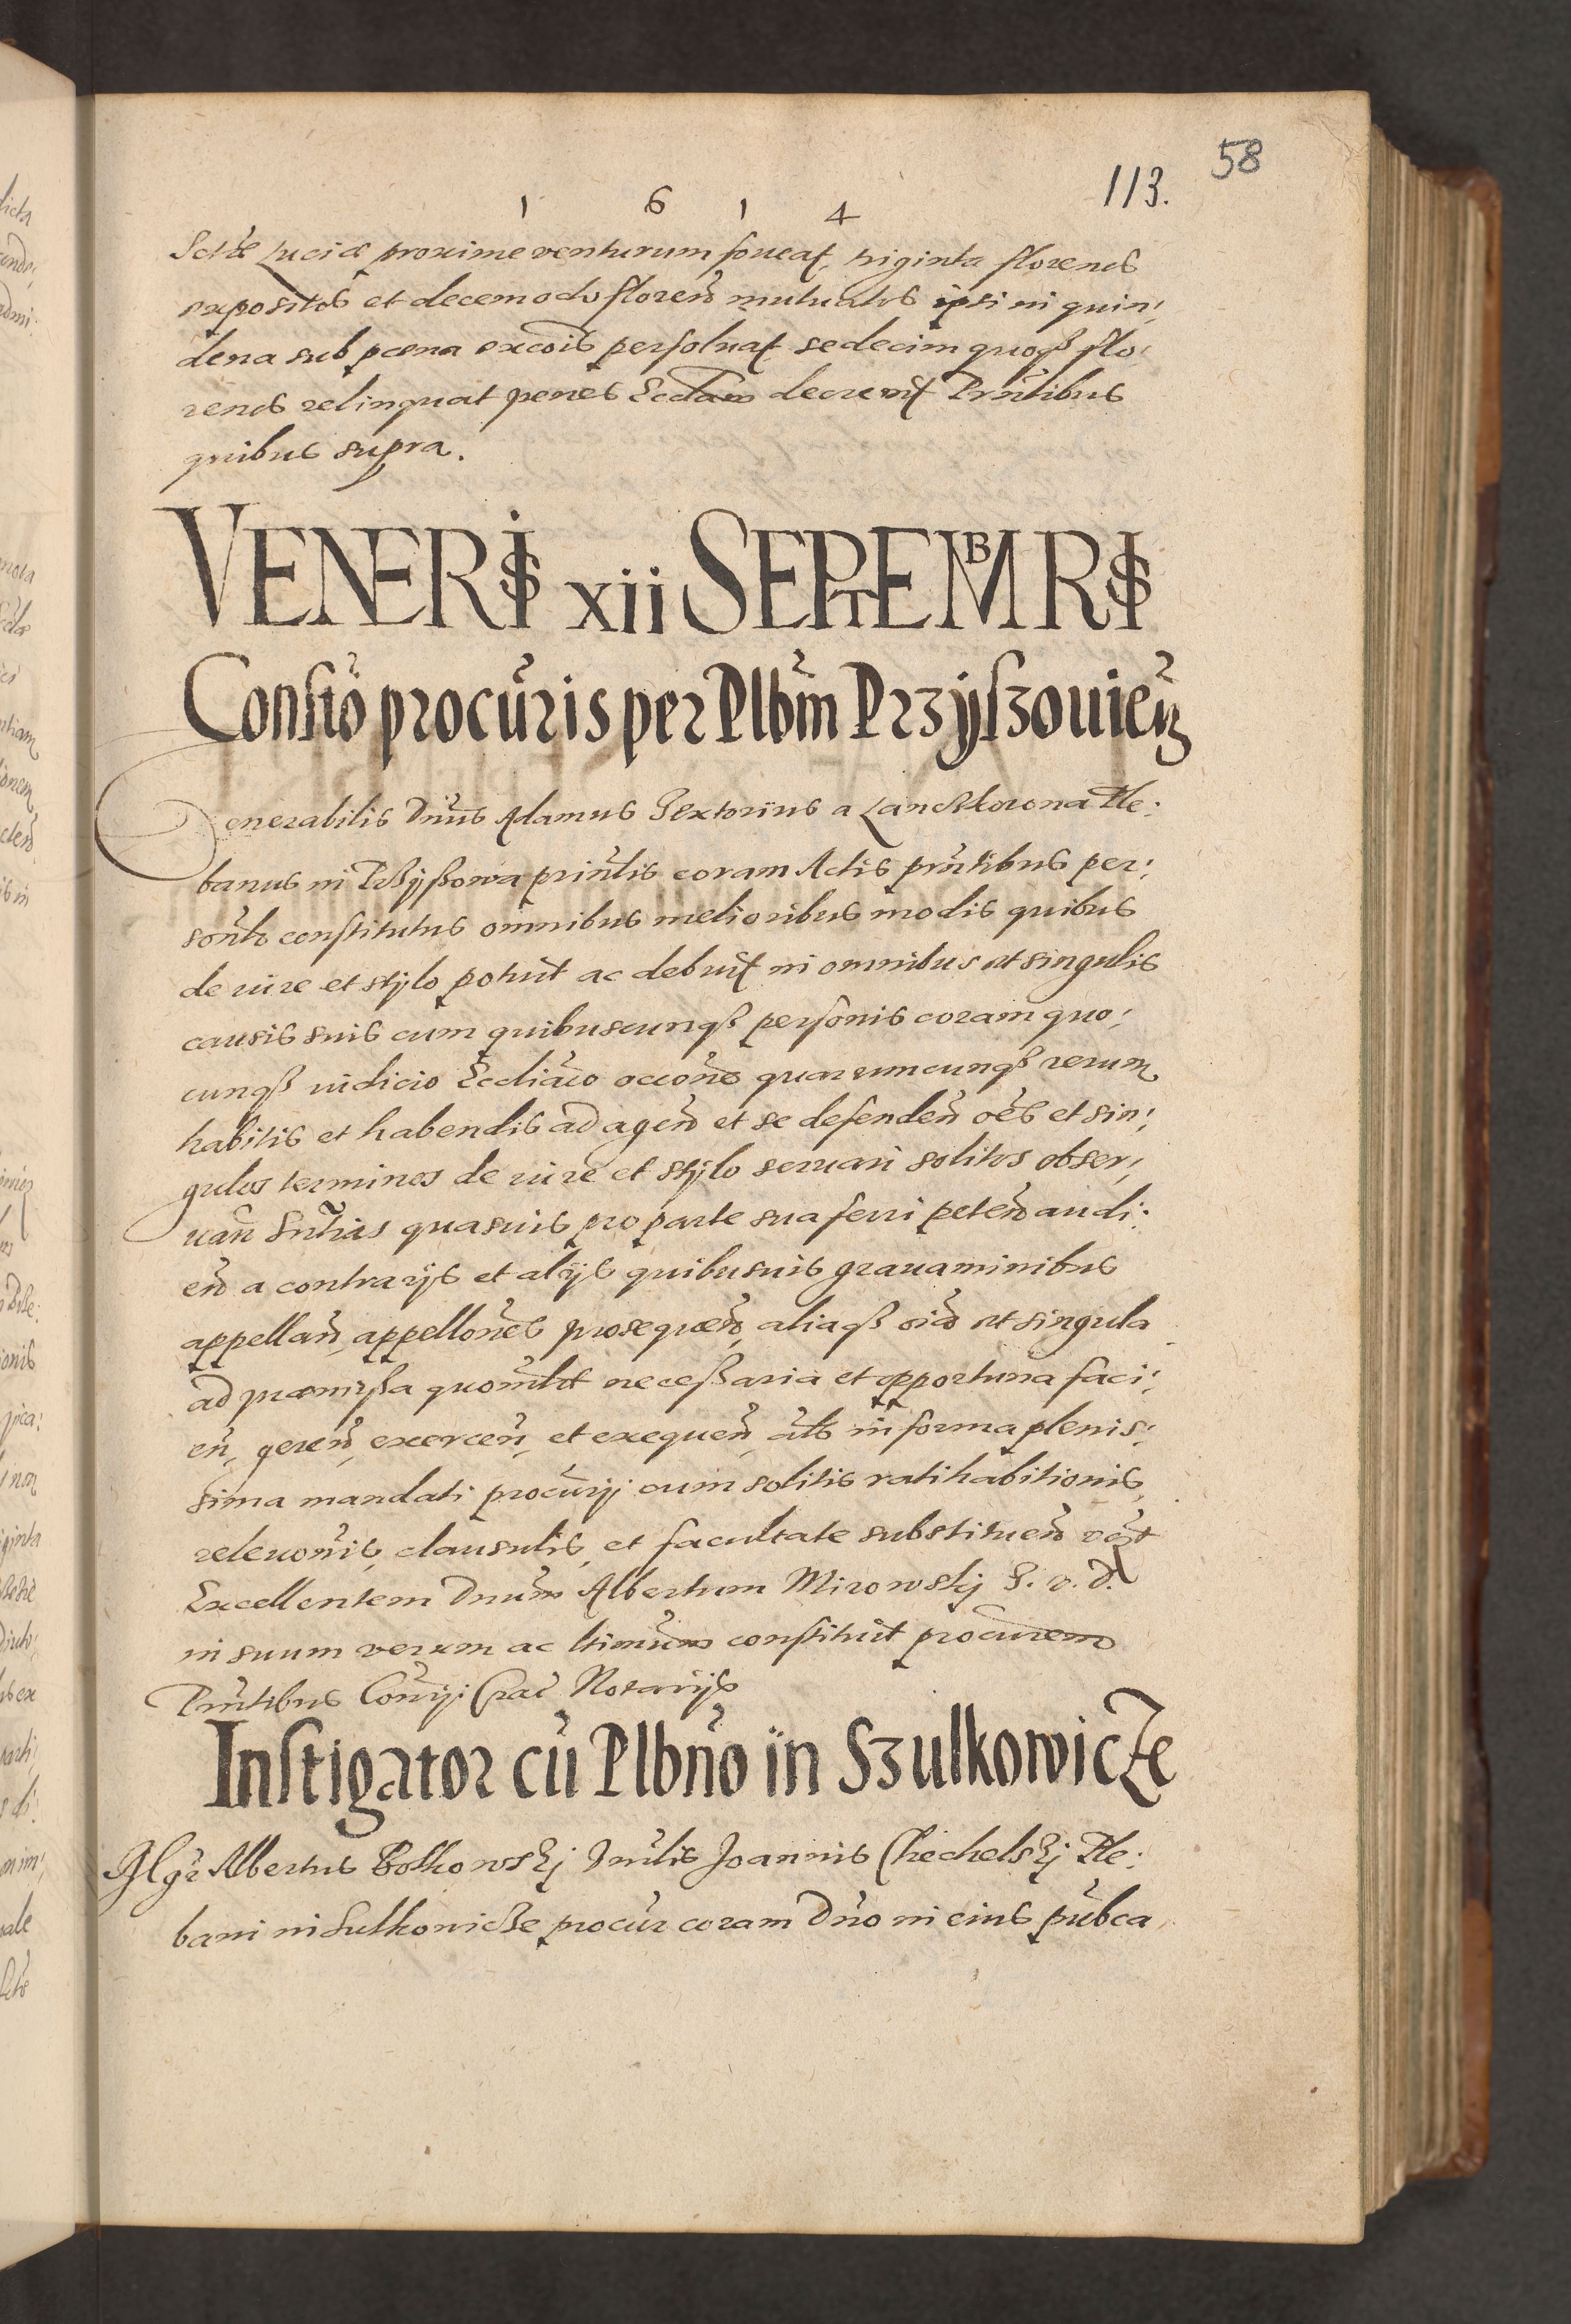 58
113.
1 6 1 4
Sctæ Luciæ proxime venturum soueat, triginta florenos
expositos et decem octo floren̄ mutuatos ipsi in quin:
dena sub pœna excōis persoluat sedecim quoqß flo:
renos relinquat penes Eccl̃am decreuit Prñtibus
quibus supra.
VENERIS xii SEPTEMBRIS
Constō procũris per Plbm̃ Przyszouień
Venerabilis Dñus Adamus Textorius a Lanckorona Ple:
banus in Pßyßowa prinr̃lis coram Actis prñtibus per:
sonr̃ constitutus omnibus melioribus modis quibus
de iure et stylo potuit ac debuit in omnibus et singulis
causis suis cum quibuscunqß personis coram quo:
cunqß iudicio Eccliãco occōne quarumcunqß rerum
habitis et habendis ad agen̄ et se defenden̄ oẽs et sin:
gulos terminos de iure et stylo seruari solitos obser:
uan̄ Sntĩas quasuis pro parte sua ferri peten̄ audi:
en̄ a contrarijs et alijs quibusuis grauaminibus
appellan̄, appellōnes prosequen̄, aliaqß oĩa et singula
ad præmißa quomlt̃ neceßaria et opportuna faci:
en̄, geren̄, exercen̄, et exequen̄, als̃ in forma plenis:
sima mandati procũrij cum solitis ratihabitionis,
releuōnis, clausulis, et facultate substituen̄
Excellentem Dnum̃ Albertum Mirowsky J. v. d.
in suum verum ac ltimum̃ constituit procurem̃
Prñtibus Conrĩj Crac̃ Notarijs
Instigator cũ Plbño in Szulkowicze
Albertus Bolkowskj Joannis Chechelskj Ple:
bani in Sulkowicße procũr coram Dño in eius pũbca